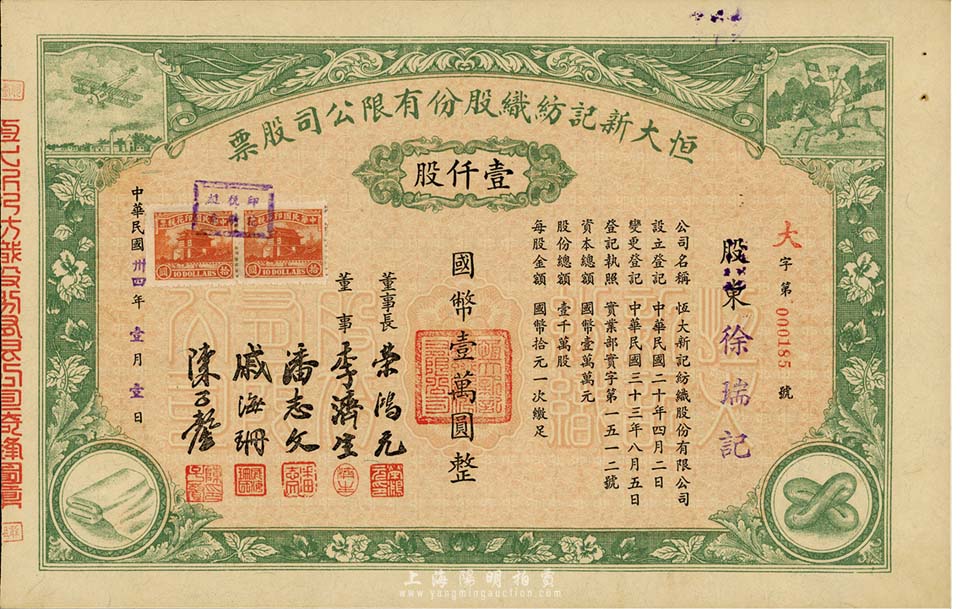 恒大新記紡織股份有限公司股票
壹仟股
大字第000185號
股東 徐瑞記
公司名稱 恆大新記紡織股份有限公司
設立登記 中華民國二十年四月二日
變更登記 中華民國三十三年八月五日
登記執照 實業部實字第一五一二號
資本總額 國幣壹萬萬元
股份總額 壹千萬股
每股金額 國幣拾元一次繳足
國幣壹萬圓整
董事長 榮鴻元
董事 李濟生
潘志文
戚海珊
陳子馨
中華民國卅四年壹月壹日
中華民國印花稅票
拾圓
10 DOLLARS
中華民國印花稅票
拾圓
10 DOLLARS
上海陽明拍賣
www.yangmingauction.com